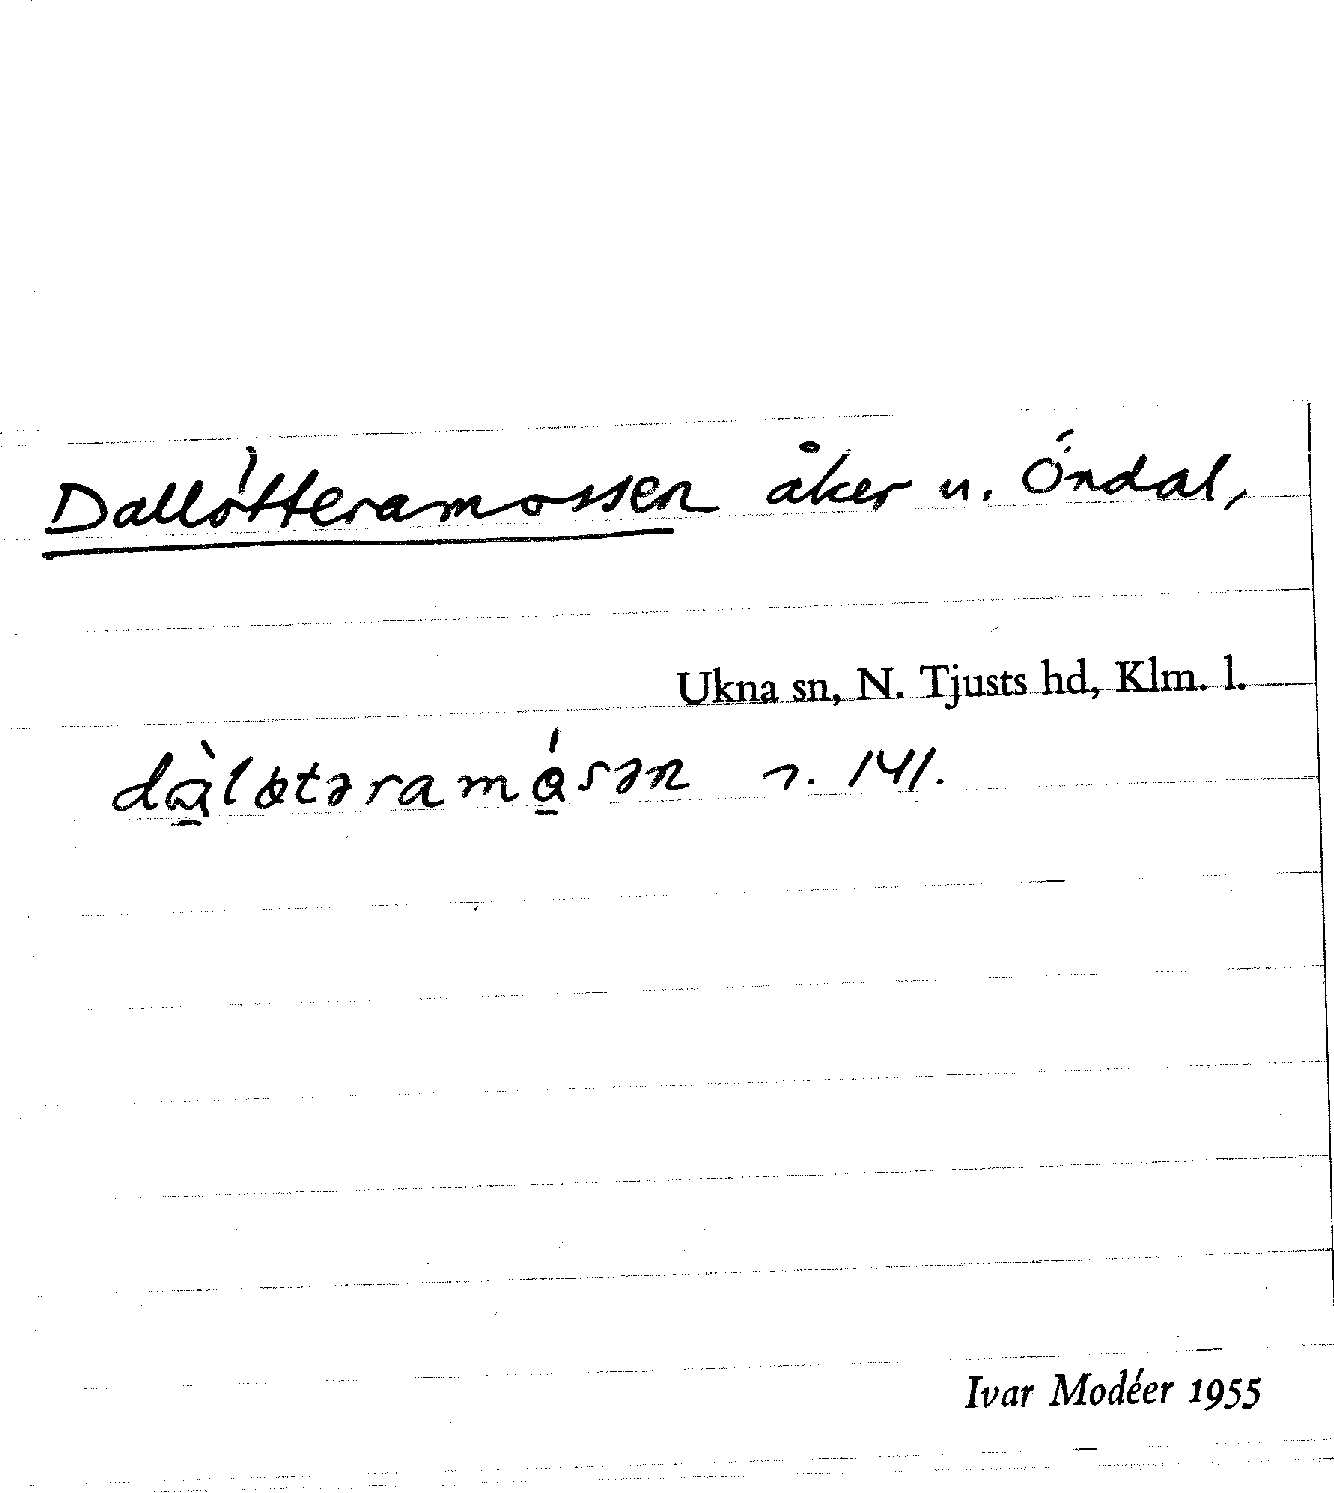 Dallötteramossen åker u. Öndal,
Ukna sn, N. Tjusts hd, Klm. l.
dàløtəramǻsən 141.
Ivar Modéer 1955